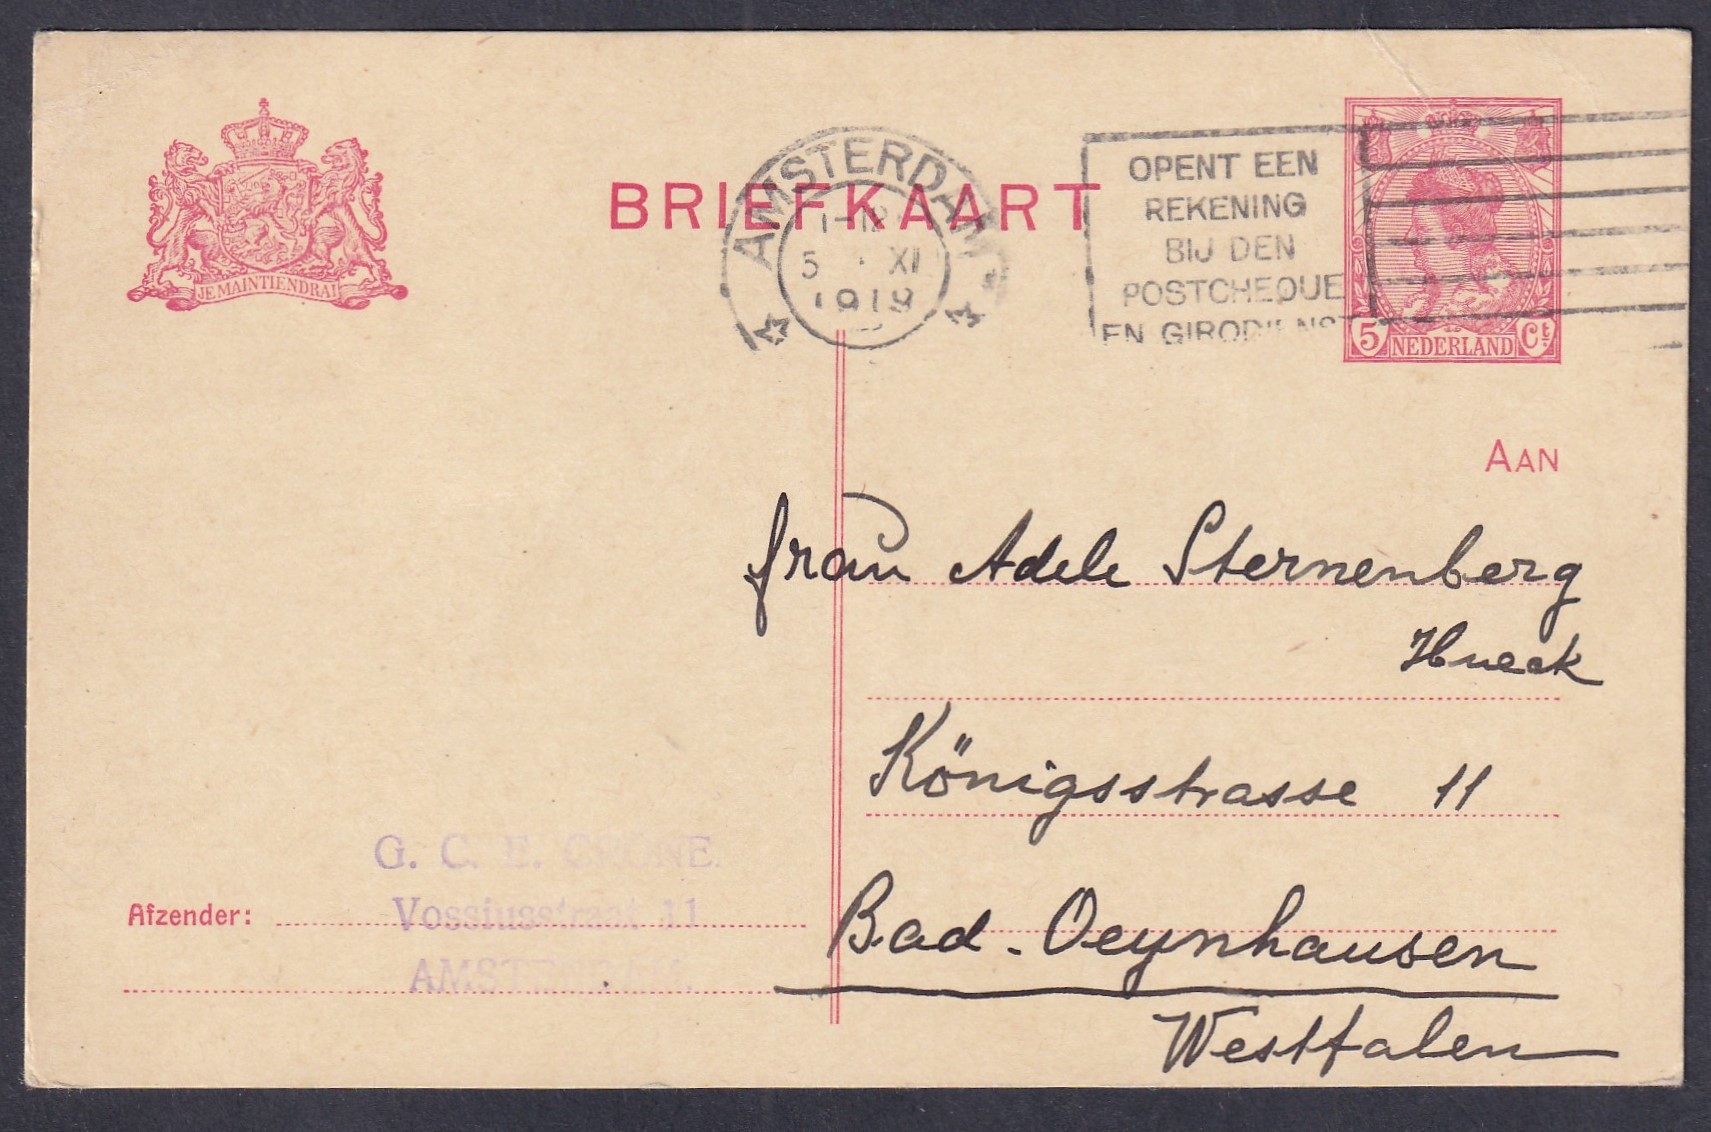 JE MAINTIENDRAI
BRIEFKAART
AMSTERDAM
5 XI
1919
OPENT EEN
REKENING
BIJ DEN
POSTCHEQUE
EN GIRODIENST
5 NEDERLAND Ct.
AAN
Frau Adele Sternenberg
Hueck
Königsstrasse 11
Bad-Oeynhausen
Westfalen
G. C. E.
Afzender: Vossiusstraat 11
AMSTERDAM.